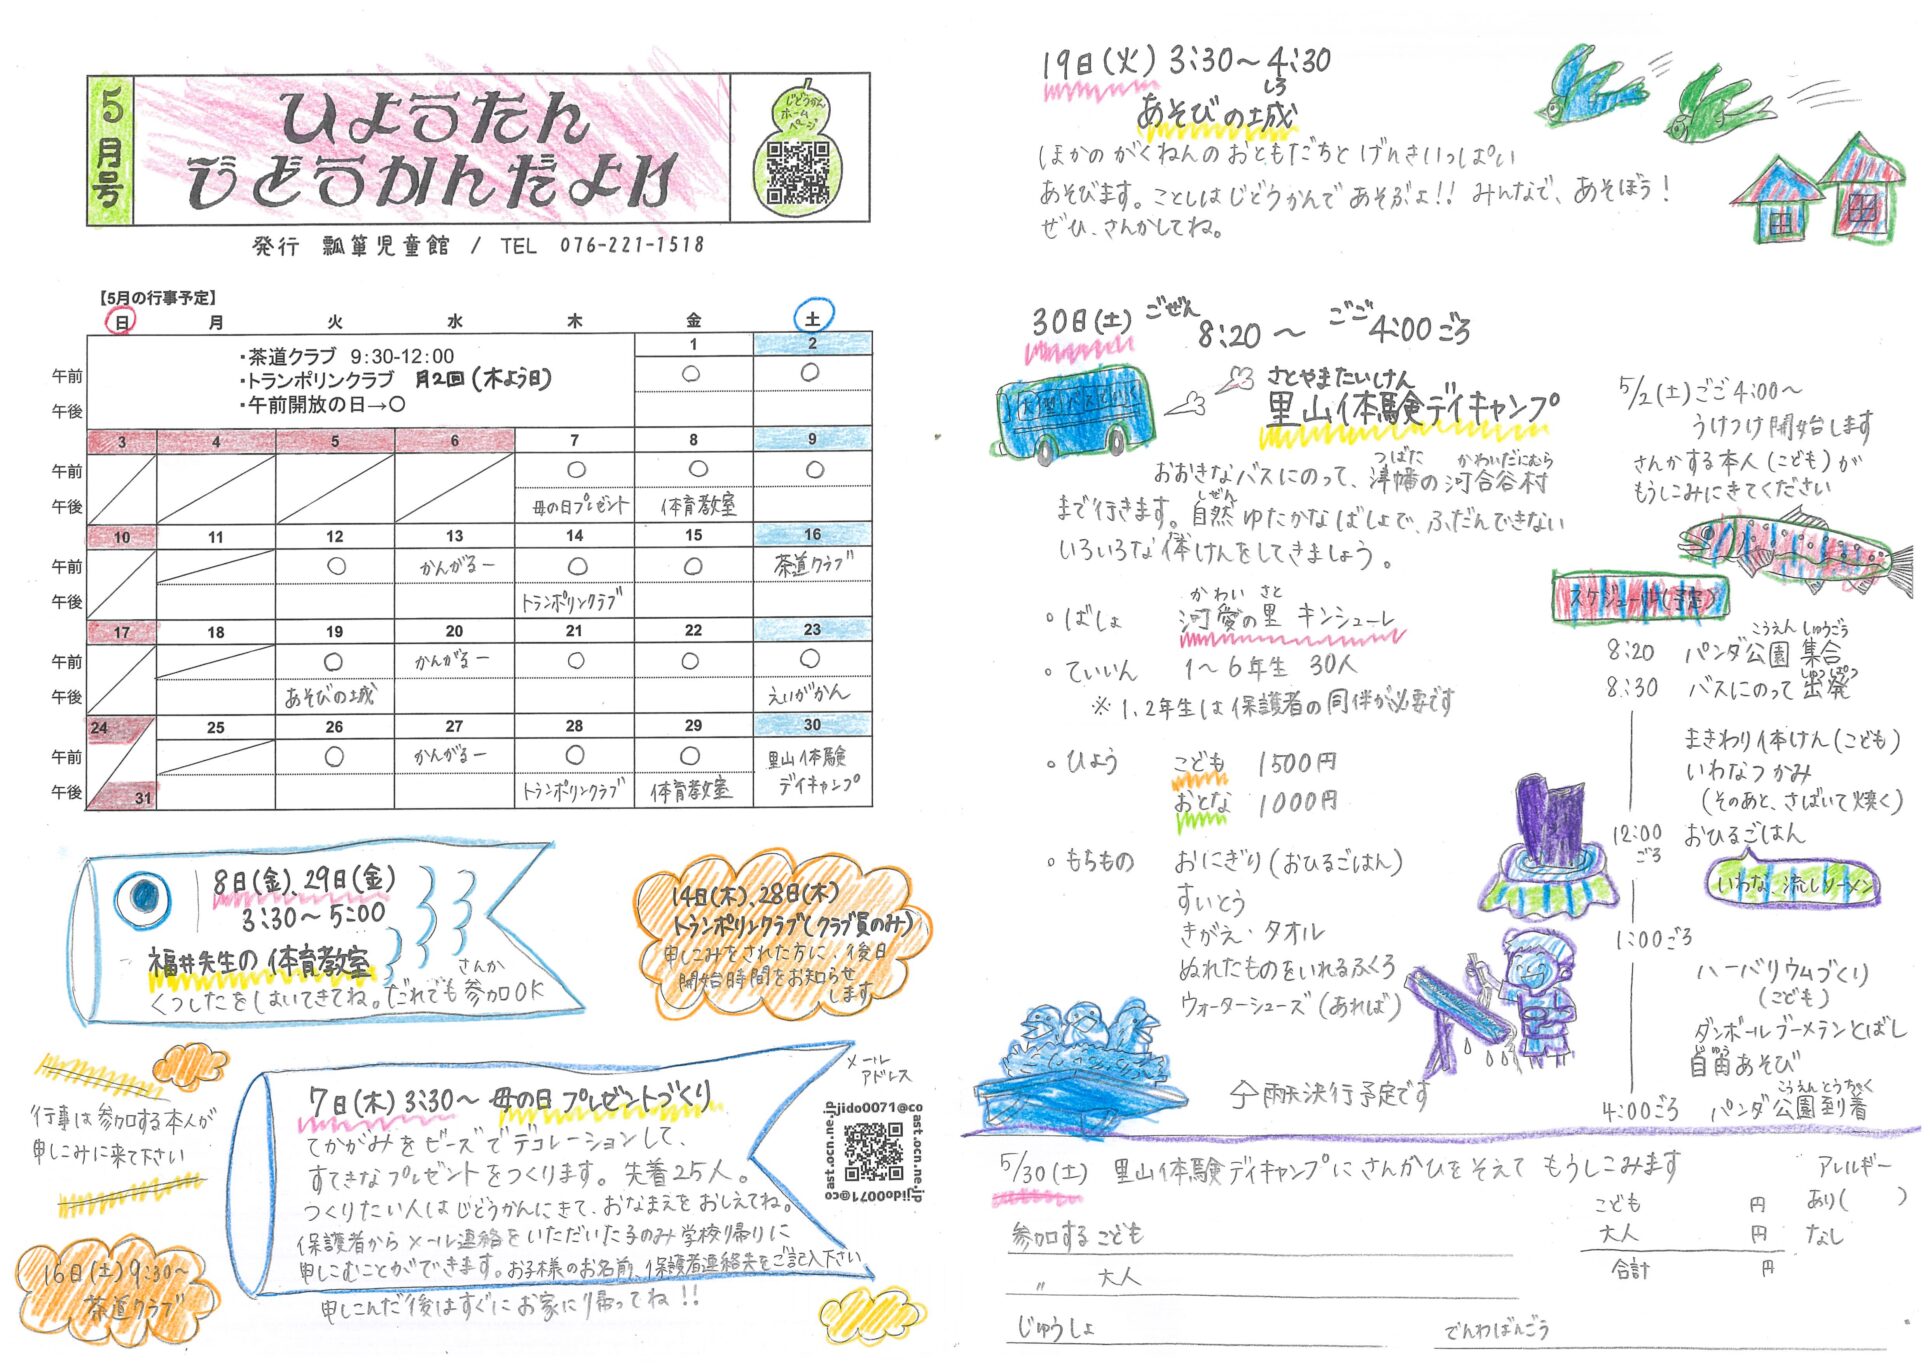 5月号
ひょうたん
じどうかんだより
じどうかん
ホーム
ページ
発行 瓢箪児童館 / TEL 076-221-1518
【5月の行事予定】
日 月 火 水 木 金 土
・茶道クラブ 9:30-12:00
・トランポリンクラブ 月2回(木よう日)
・午前開放の日→○
1 2
午前 ○ ○
午後
3 4 5 6 7 8 9
午前 ○ ○ ○
午後 母の日プレゼント 体育教室
10 11 12 13 14 15 16
午前 ○ かんがるー ○ ○ 茶道クラブ
午後 トランポリンクラブ
17 18 19 20 21 22 23
午前 ○ かんがるー ○ ○ ○
午後 あそびの城 えいがかん
24 25 26 27 28 29 30
午前 ○ かんがるー ○ ○ 里山体験
午後 31 トランポリンクラブ 体育教室 デイキャンプ
8日(金)、29日(金)
3:30〜5:00
福井先生の体育教室
さんか
くつしたをはいてきてね。だれでも参加OK
14日(木)、28日(木)
トランポリンクラブ(クラブ員のみ)
申しこみをされた方に、後日
開始時間をお知らせ
します
行事は参加する本人が
申しこみに来て下さい
16日(土)9:30〜
茶道クラブ
7日(木)3:30〜 母の日プレゼントづくり
てかがみをビーズでデコレーションして、
すてきなプレゼントをつくります。先着25人。
つくりたい人はじどうかんにきて、おなまえをおしえてね。
保護者からメール連絡をいただいた子のみ学校帰りに
申しこむことができます。お子様のお名前、保護者連絡先をご記入下さい
申しこんだ後はすぐにお家に帰ってね!!
メール
アドレス
jido0071@co
ast.ocn.ne.jp
jido0071@co
ast.ocn.ne.jp
19日(火)3:30〜4:30
しろ
あそびの城
ほかのがくねんのおともだちとげんきいっぱい
あそびます。ことしはじどうかんであそぶよ!!みんなで、あそぼう!
ぜひ、さんかしてね。
30日(土)ごぜん8:20〜ごご4:00ごろ
大型バスでいく
さとやまたいけん
里山体験デイキャンプ
つばた かわいだにむら
おおきなバスにのって、津幡の河合谷村
しぜん
まで行きます。自然ゆたかなばしょで、ふだんできない
たい
いろいろな体けんをしてきましょう。
5/2(土)ごご4:00〜
うけつけ開始します
さんかする本人(こども)が
もうしこみにきてください
かわい さと
○ばしょ 河愛の里 キンシューレ
○ていいん 1〜6年生 30人
※1、2年生は保護者の同伴が必要です
○ひよう こども 1500円
おとな 1000円
○もちもの おにぎり(おひるごはん)
すいとう
きがえ・タオル
ぬれたものをいれるふくろ
ウォーターシューズ(あれば)
雨天決行予定です
スケジュール(予定)
こうえん しゅうごう
8:20 パンダ公園 集合
しゅっぱつ
8:30 バスにのって出発
まきわり体けん(こども)
いわなつかみ
(そのあと、さばいて焼く)
12:00ごろ おひるごはん
いわな、流しソーメン
1:00ごろ
ハーバリウムづくり
(こども)
ダンボールブーメランとばし
じゆう
自由あそび
こうえん とうちゃく
4:00ごろ パンダ公園到着
5/30(土) 里山体験デイキャンプにさんかひをそえてもうしこみます
アレルギー
あり( )
なし
こども 円
大人 円
合計 円
参加するこども
〃 大人
じゅうしょ でんわばんごう